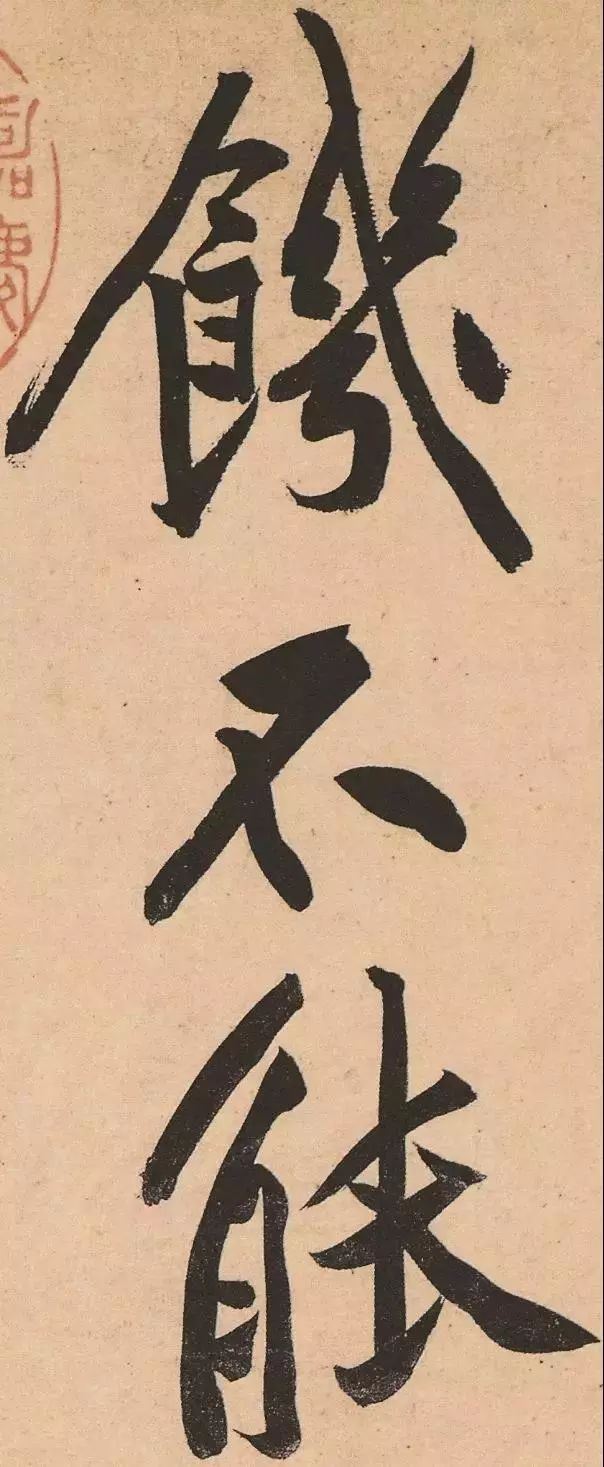 饑不能